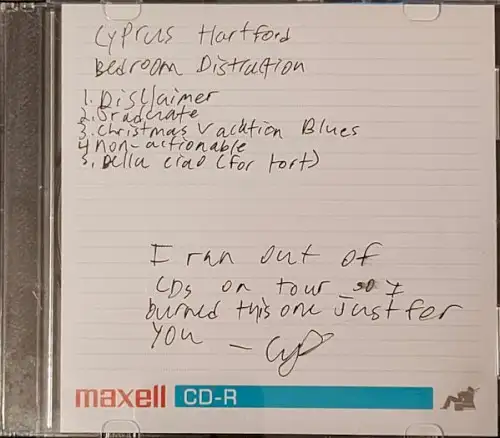 Cyprus Hartford
Bedroom Distraction
1. Disclaimer
2. Graduate
3. Christmas Vacation Blues
4 non-actionable
5. Bella ciao (for tort)
I ran out of
CDs on tour so I
burned this one just for
you – Cyp
maxell CD-R